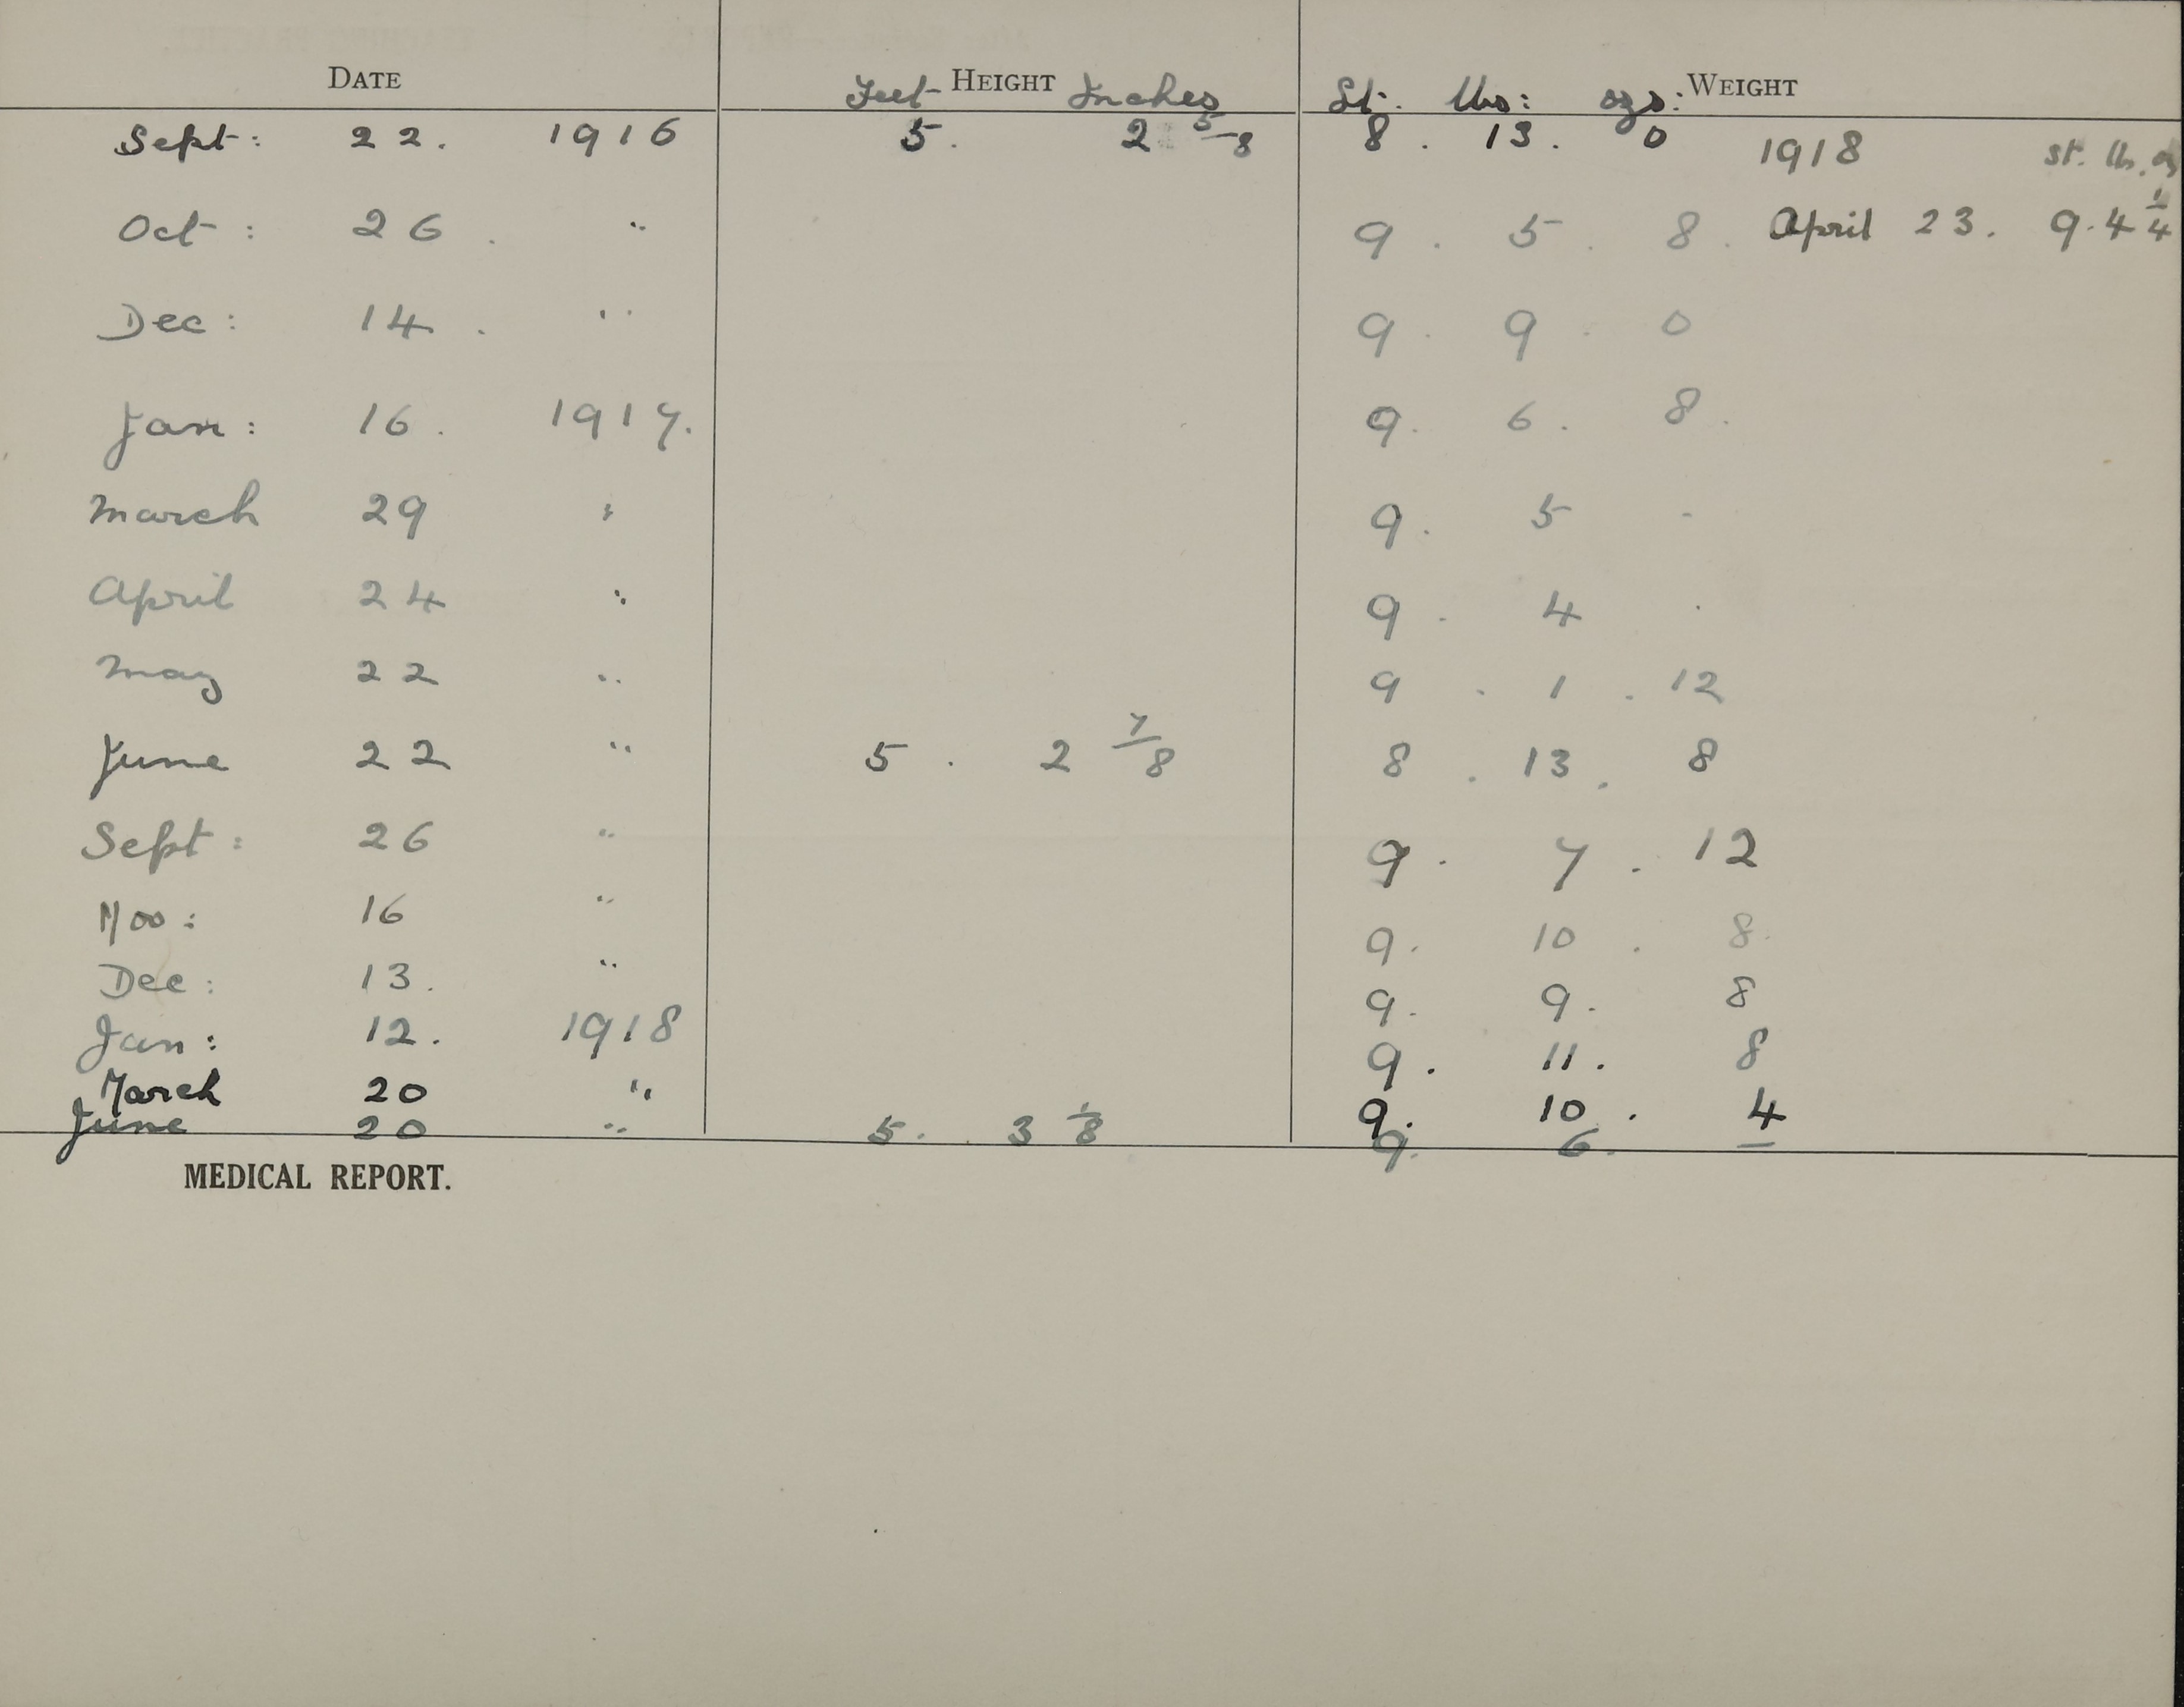 DATE Feet HEIGHT Inches St. lbs: ozs: WEIGHT
Sept: 22. 1916 5. 2 5/8 8. 13. 0 1918 st. lb. oz
Oct: 26. " 9. 5. 8. April 23. 9.4 1/4
Dec: 14. " 9. 9. 0
Jan: 16. 1917. 9. 6. 8.
March 29 " 9. 5 -
April 24 " 9. 4 .
May 22 " 9. 1. 12
June 22 " 5. 2 7/8 8. 13. 8
Sept: 26 " 9. 7. 12
Nov: 16 " 9. 10. 8.
Dec: 13. " 9. 9. 8
Jan: 12. 1918 9. 11. 8
March 20 " 9. 10. 4
June 20 " 5. 3 1/8 9. 6. —
MEDICAL REPORT.